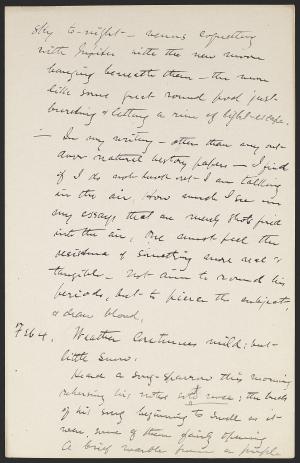 sky to-night - venus coquetting
with Jupiter with the new moon
hanging beneath them - the moon
like some great round pool just
bursting & letting a rim of light escape.
— In my writing - other than my out-
door natural history papers - I find
if I do not look out I am talking
in the air. How much I see in
my essays that are merely shots fired
into the air. One must feel the
resistance of something more real &
tangible. Not aim to round his
periods, but to pierce the subject,
& draw blood.
Feb 4. Weather continues mild; but
little snow.
Heard a song-sparrow this morning
rehearsing his notes sotto voce; the buds
of his song beginning to swell as it
were some of them fairly opening
A brief warble from a purple